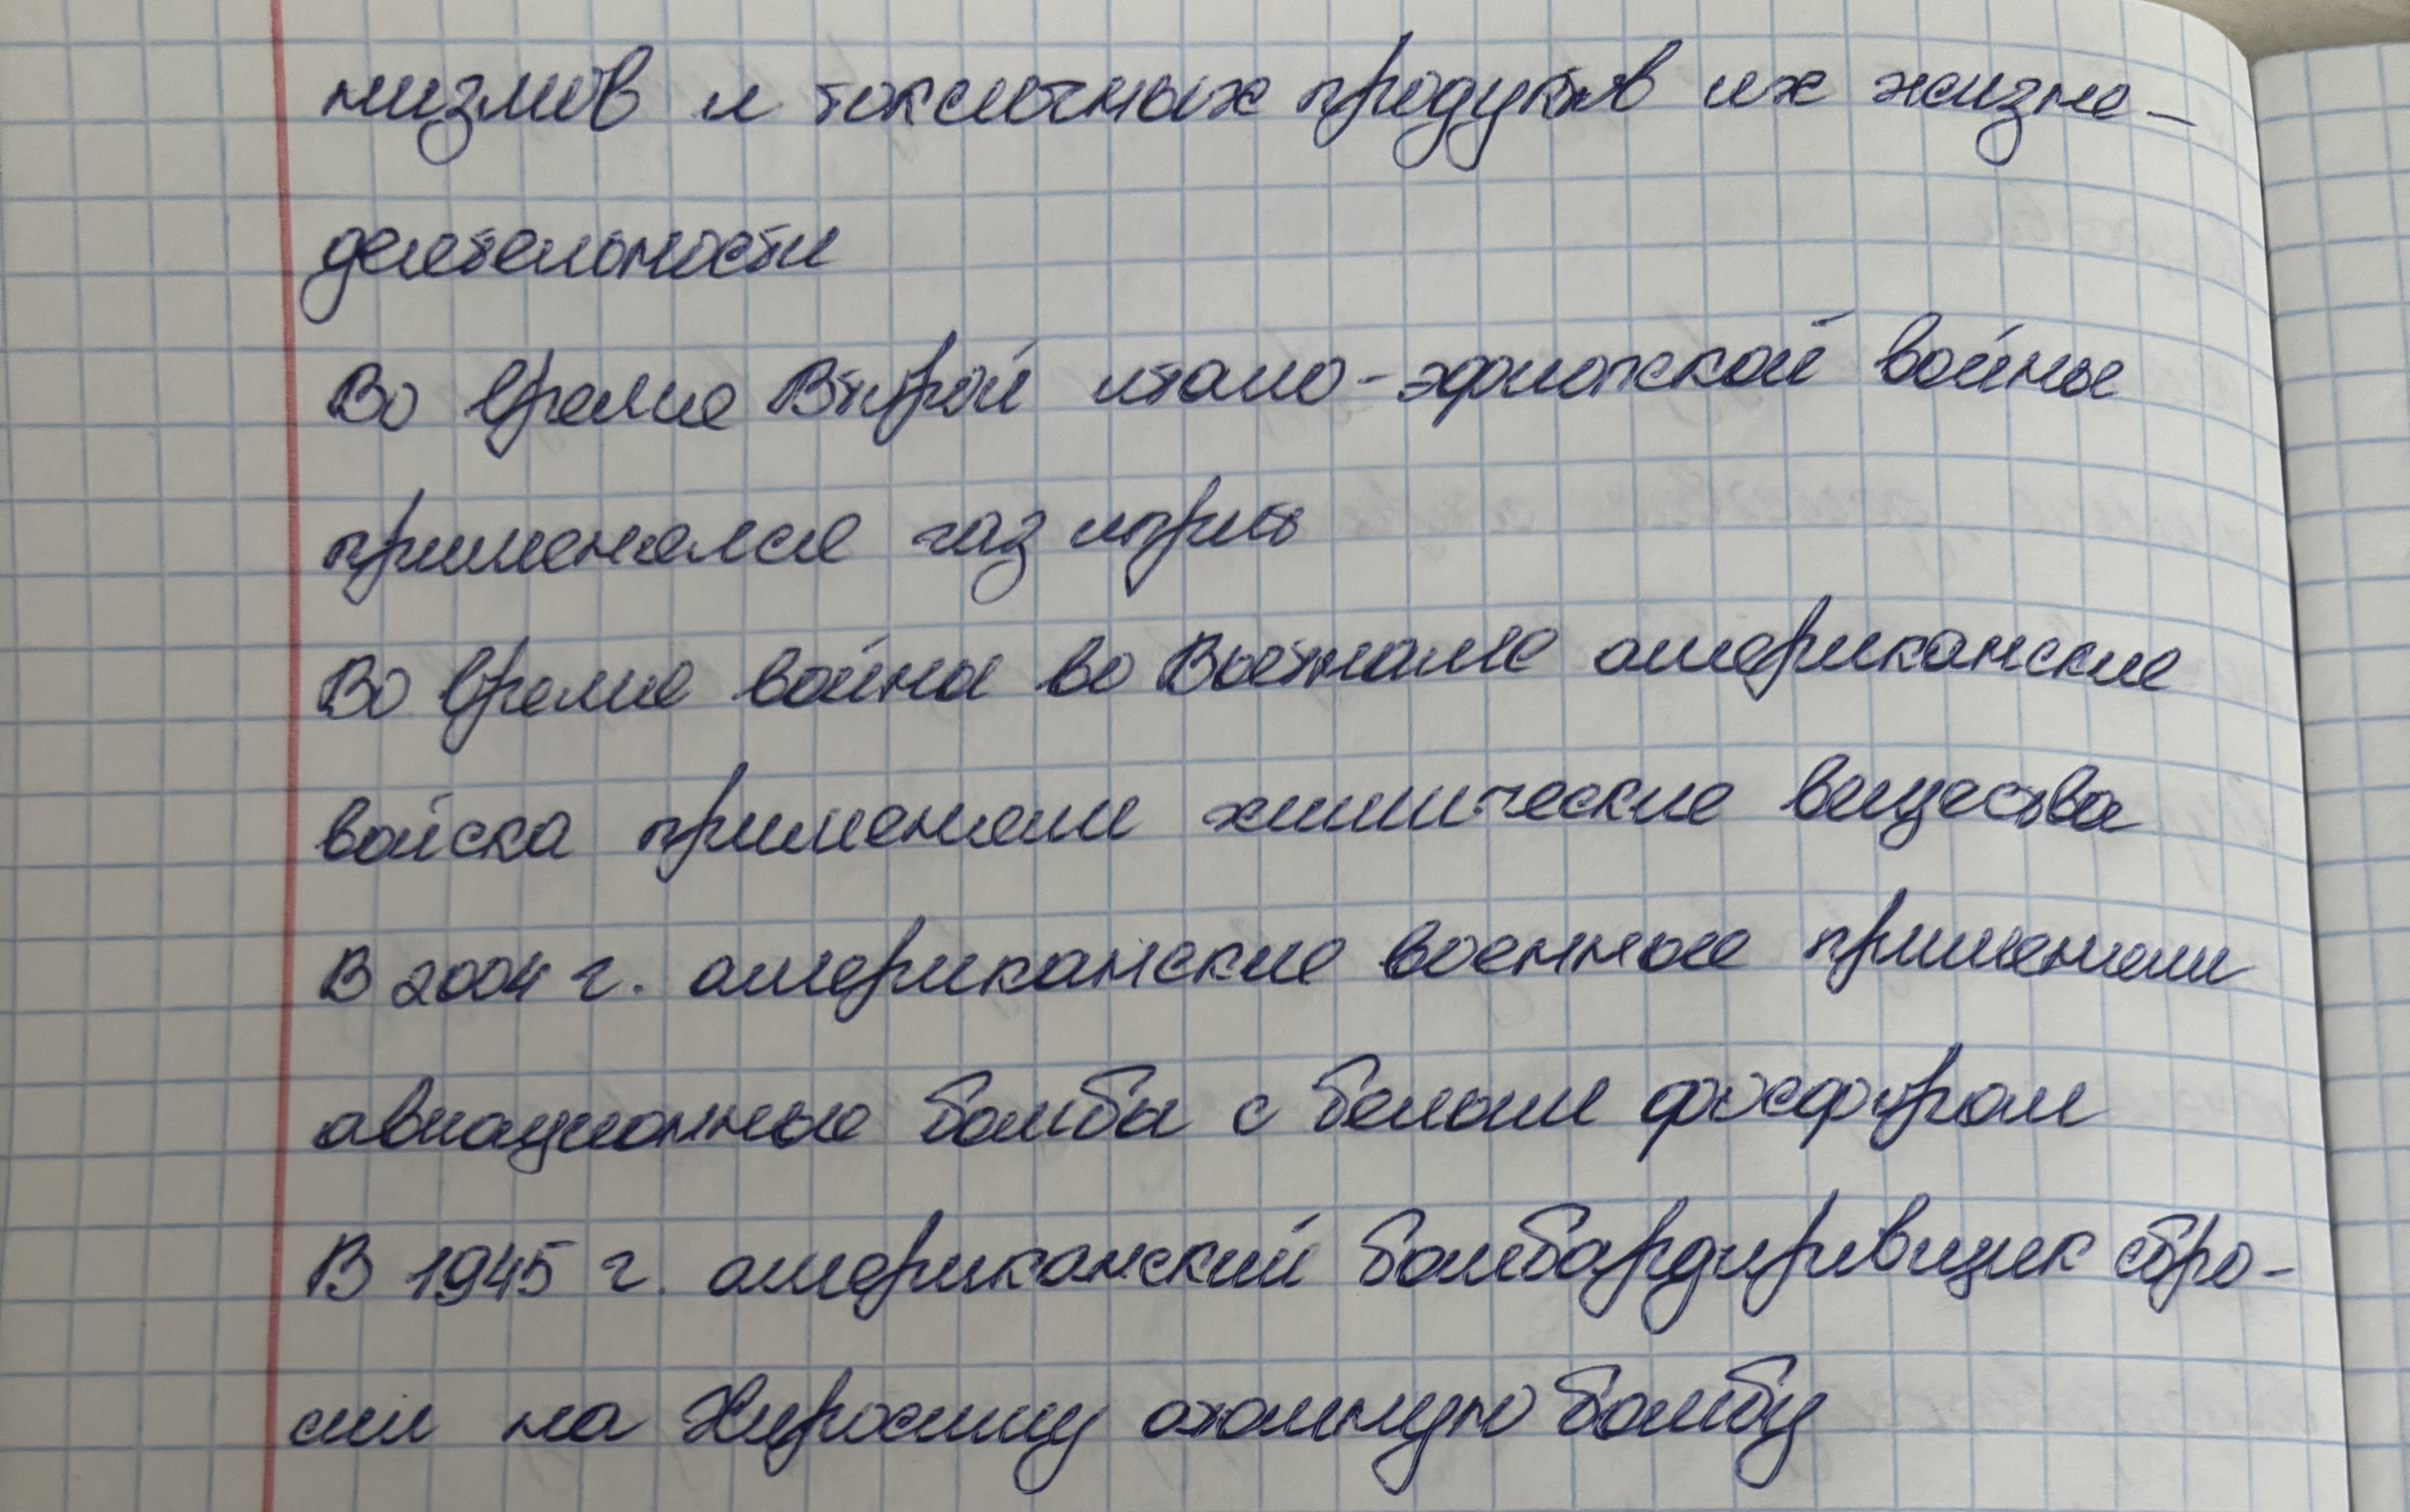 низмов и токсичных продуктов их жизне-
деятельности
Во время Второй итало-эфиопской войны
применялся газ иприт
Во время война во Вьетнаме американские
войска применяли химические вещества
В 2004 г. американские военные применяли
авиационные бомбы с белым фосфором
В 1945 г. американский бомбардировщик сбро-
сил на Хиросиму атомную бомбу